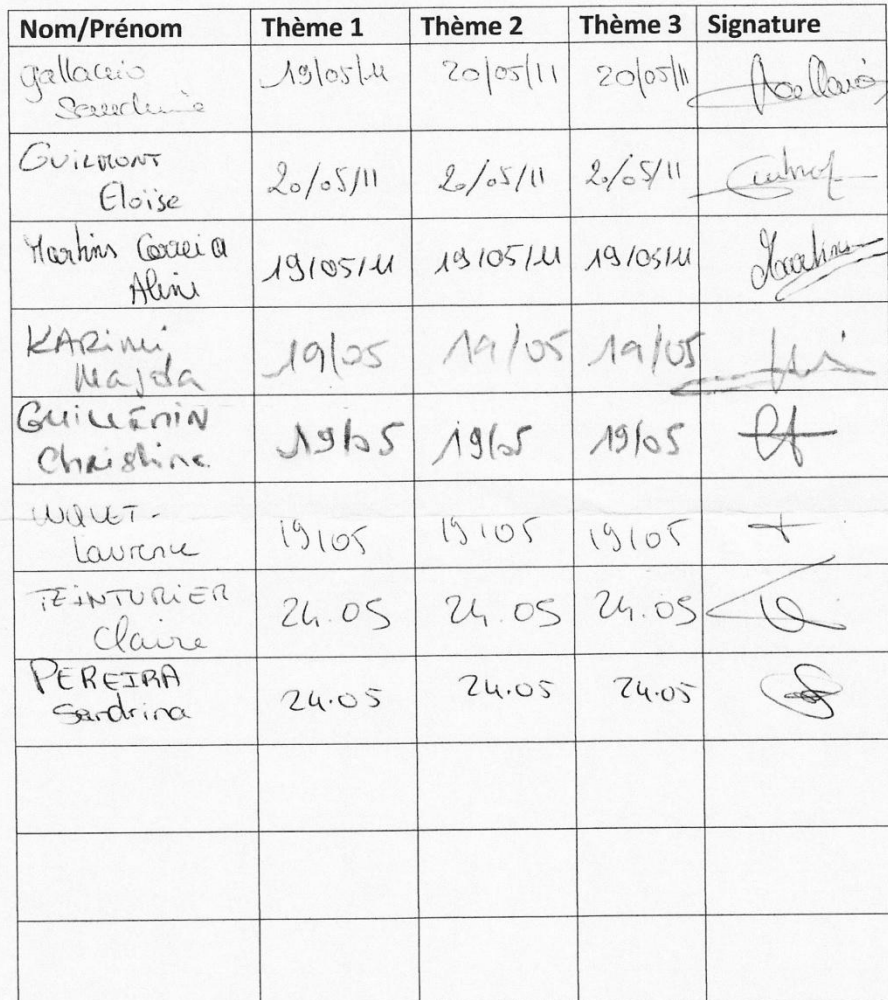 Nom/Prénom Thème 1 Thème 2 Thème 3 Signature
Gallaccio 19/05/11 20/05/11 20/05/11
GUILMONT
Eloïse 20/05/11 20/05/11 20/05/11
Martins Correia
Aline 19/05/11 19/05/11 19/05/11
KARimi
Majda 19/05 19/05 19/05
GUILLEMIN
Christine 19/05 19/05 19/05
Laurence 19/05 19/05 19/05
TEINTURiER
Claire 24.05 24.05 24.05
PEREIRA
Sandrina 24.05 24.05 24.05